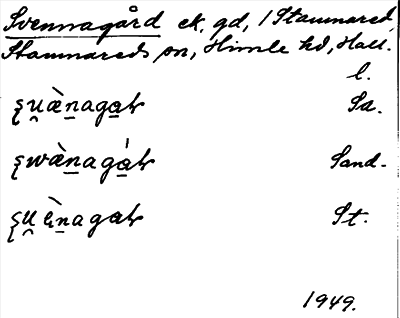 Svennagård ek. gd, 1 Stamnared,
Stamnareds sn, Himle hd, Hall.
l.
ʂu̯æ̀nagaʈ Sa.
ʂwæ̀nagáʈ Sand.
ʂu̯ɛ̀nagaʈ St.
1949.